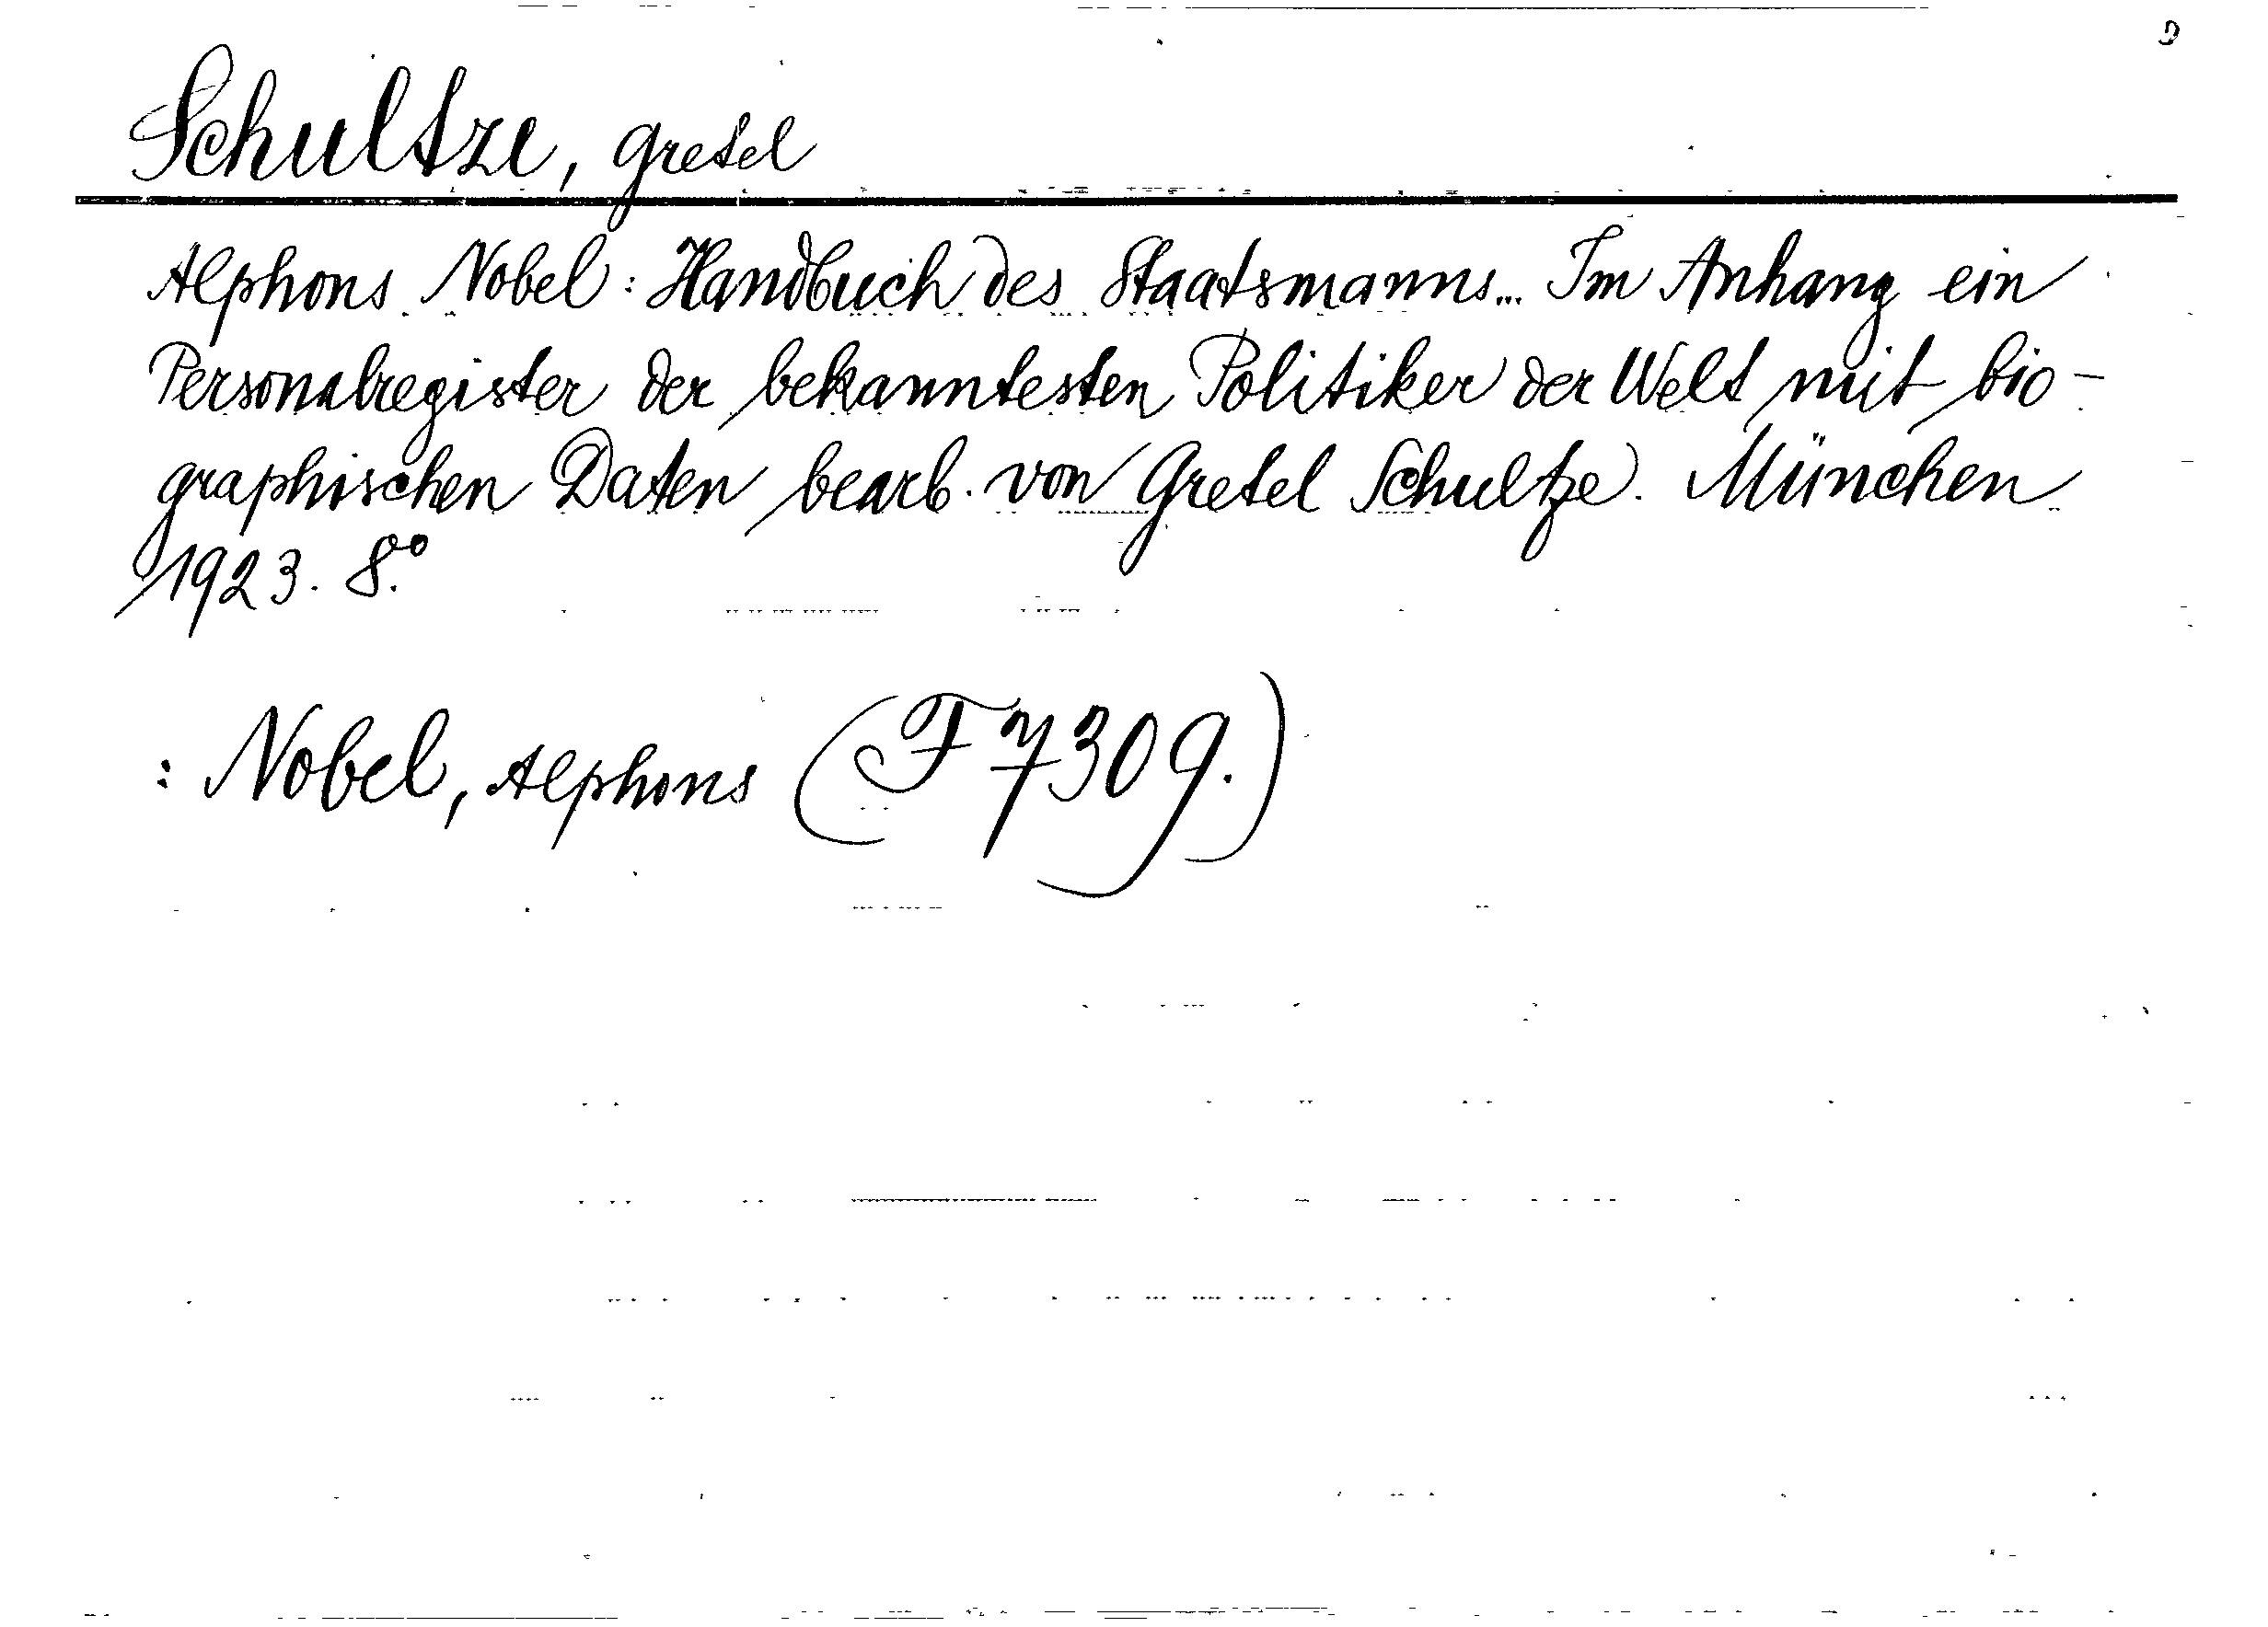 Schultze, Gretel
Alphons Nobel: Handbuch des Staatsmanns... Im Anhang ein
Personalregister der bekanntesten Politiker der Welt mit bio-
graphischen Daten bearb. von Gretel Schultze. München
1923. 8.°
: Nobel, Alphons (F 7309.)